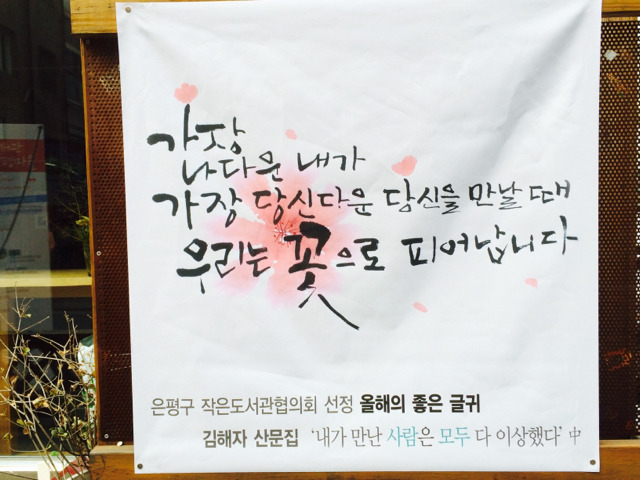 가장
나다운 내가
가장 당신다운 당신을 만날 때
우리는 꽃으로 피어납니다
은평구 작은도서관협의회 선정 올해의 좋은 글귀
김해자 산문집 '내가 만난 사람은 모두 다 이상했다' 中